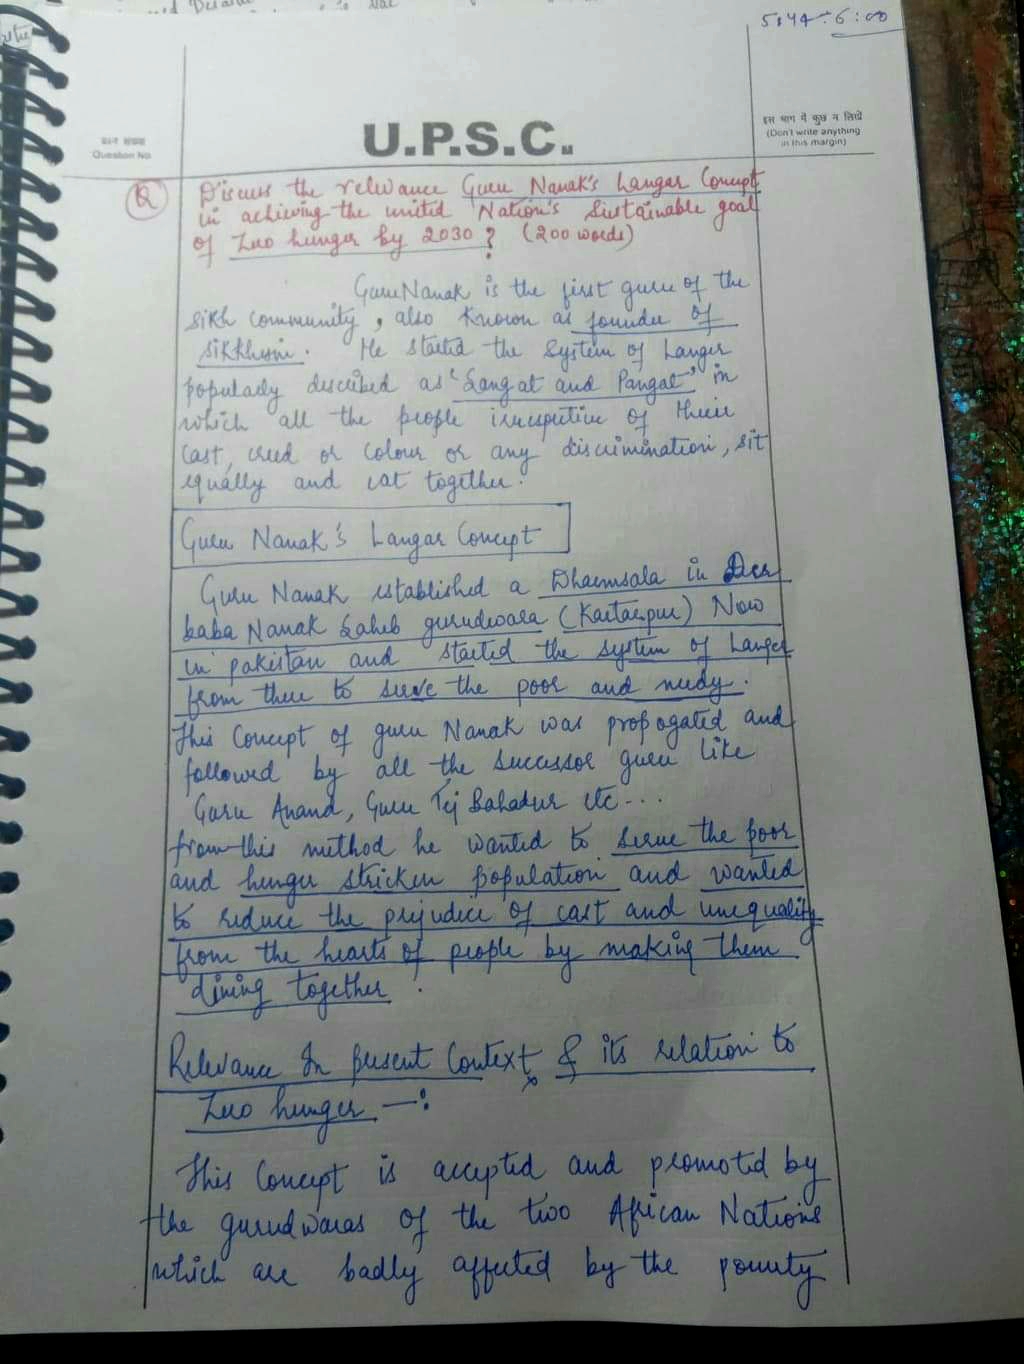 5:44 - 6:00
प्रश्न संख्या
Question No.
U.P.S.C.
इस भाग में कुछ न लिखें
(Don't write anything
in this margin)
Q
Discuss the relevance Guru Nanak's Langar Concept
in achieving the united Nation's Sustainable goal
of Zero hunger by 2030? (200 words)
Guru Nanak is the first guru of the
sikh community, also known as founder of
sikkhism. He started the system of Langer
popularly described as 'Sangat and Pangat' in
which all the people irrespective of their
cast, creed or colour or any discrimination, sit
equally and eat together.
Guru Nanak's Langar Concept
Guru Nanak established a Dharmsala in Dera
baba Nanak Saheb gurudwara (Kartarpur) Now
in pakistan and started the system of Langer
from there to serve the poor and needy.
This Concept of guru Nanak was propogated and
followed by all the successor guru like
Guru Anand, Guru Tej Bahadur etc...
from this method he wanted to serve the poor
and hunger stricken population and wanted
to reduce the prejudice of cast and unequality
from the hearts of people by making them
dining together.
Relevance In present Context & its relation to
Zero hunger —:
This Concept is accepted and promoted by
the gurudwaras of the two African Nations
which are badly affected by the poverty